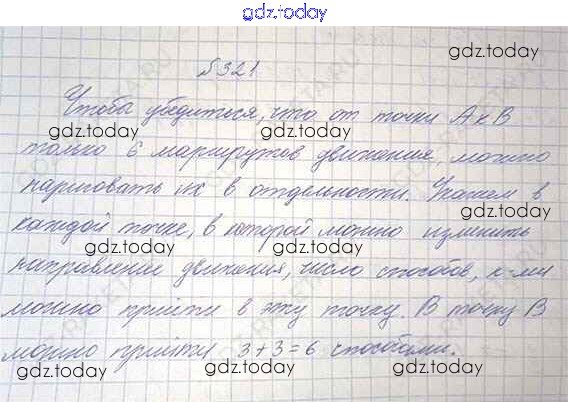 gdz.today
№321
Чтобы убедиться, что от точки A к B
только 6 маршрутов движения, можно
нарисовать их в отдельности. Укажем в
каждой точке, в которой можно изменить
направление движения, число способов, к-ми
можно прийти в эту точку. В точку B
можно прийти 3+3=6 способами.
gdz.today
gdz.today
gdz.today
gdz.today
gdz.today
gdz.today
gdz.today
gdz.today
gdz.today